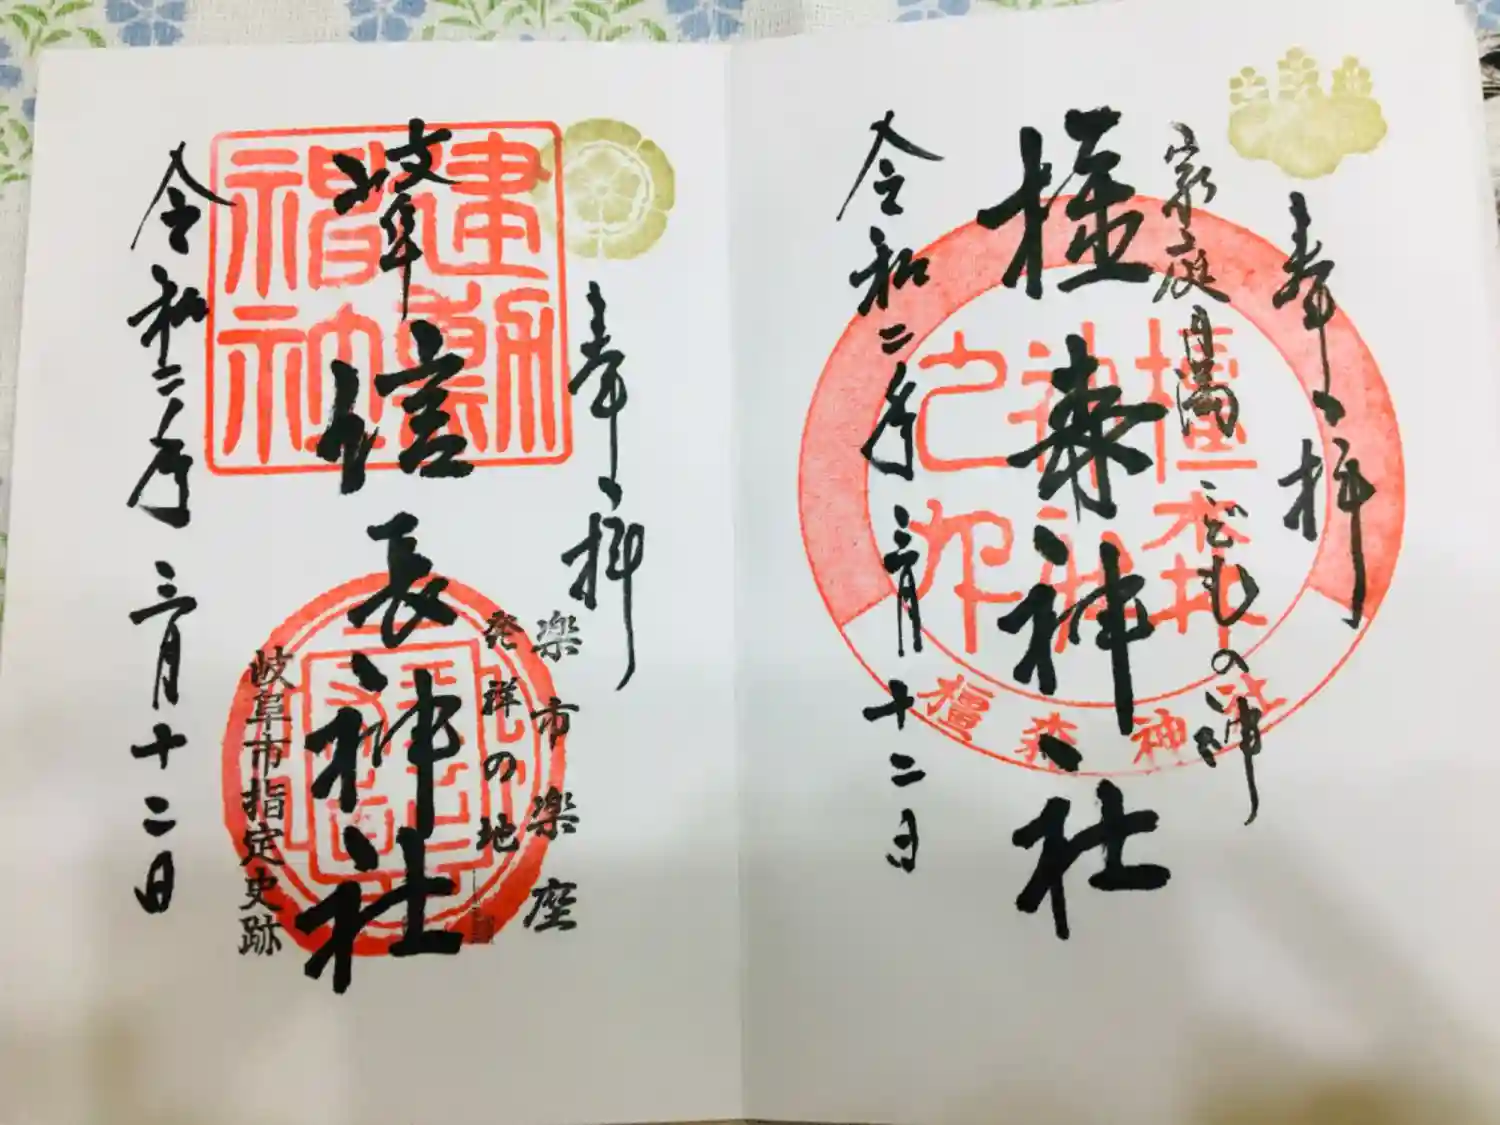 奉拝
家庭円満こどもの神
橿森神社
橿森神社
令和二年三月十二日
奉拝
楽市楽座
発祥の地
岐阜信長神社
建勲神社
岐阜市指定史跡
令和二年三月十二日